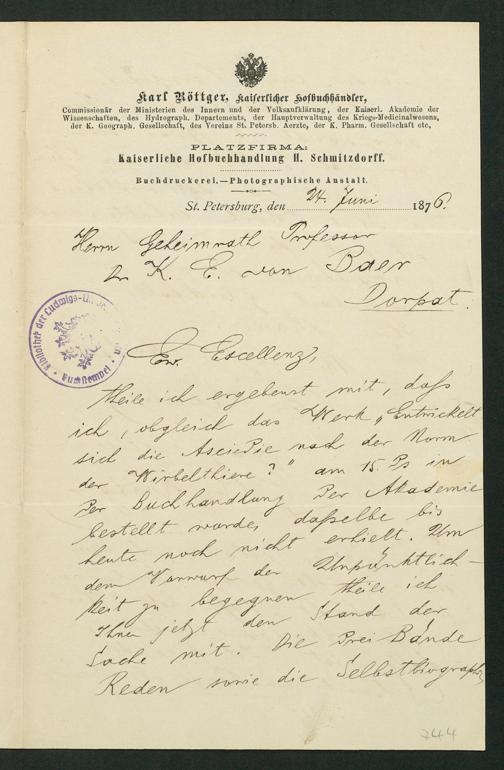 Karl Röttger, Kaiserlicher Hofbuchhändler,
Commissionär der Ministerien des Innern und der Volksaufklärung, der Kaiserl. Akademie der
Wissenschaften, des Hydrograph. Departements, der Hauptverwaltung des Kriegs-Medicinalwesens,
der K. Geograph. Gesellschaft, des Vereins St. Petersb. Aerzte, der K. Pharm. Gesellschaft etc,
PLATZFIRMA:
Kaiserliche Hofbuchhandlung H. Schmitzdorff.
Buchdruckerei.—Photographische Anstalt.
St. Petersburg, den 24. Juni 1876.
Herrn Geheimrath Professor
Dr K. E. von Baer
Dorpat.
Bibliothek der Ludwigs-U
Buchstempel
Ew. Excellenz,
theile ich ergebenst mit, daß
ich, obgleich das Werk „Entwickelt
sich die Ascidie nach der Norm
der Wirbelthiere?" am 15. Ds in
der Buchhandlung der Akademie
bestellt wurde, daßelbe bis
heute noch nicht erhielt. Um
dem Vorwurf der Unpünktlich-
keit zu begegnen theile ich
Ihnen jetzt den Stand der
Sache mit. Die drei Bände
Reden sowie die Selbstbiographie
244